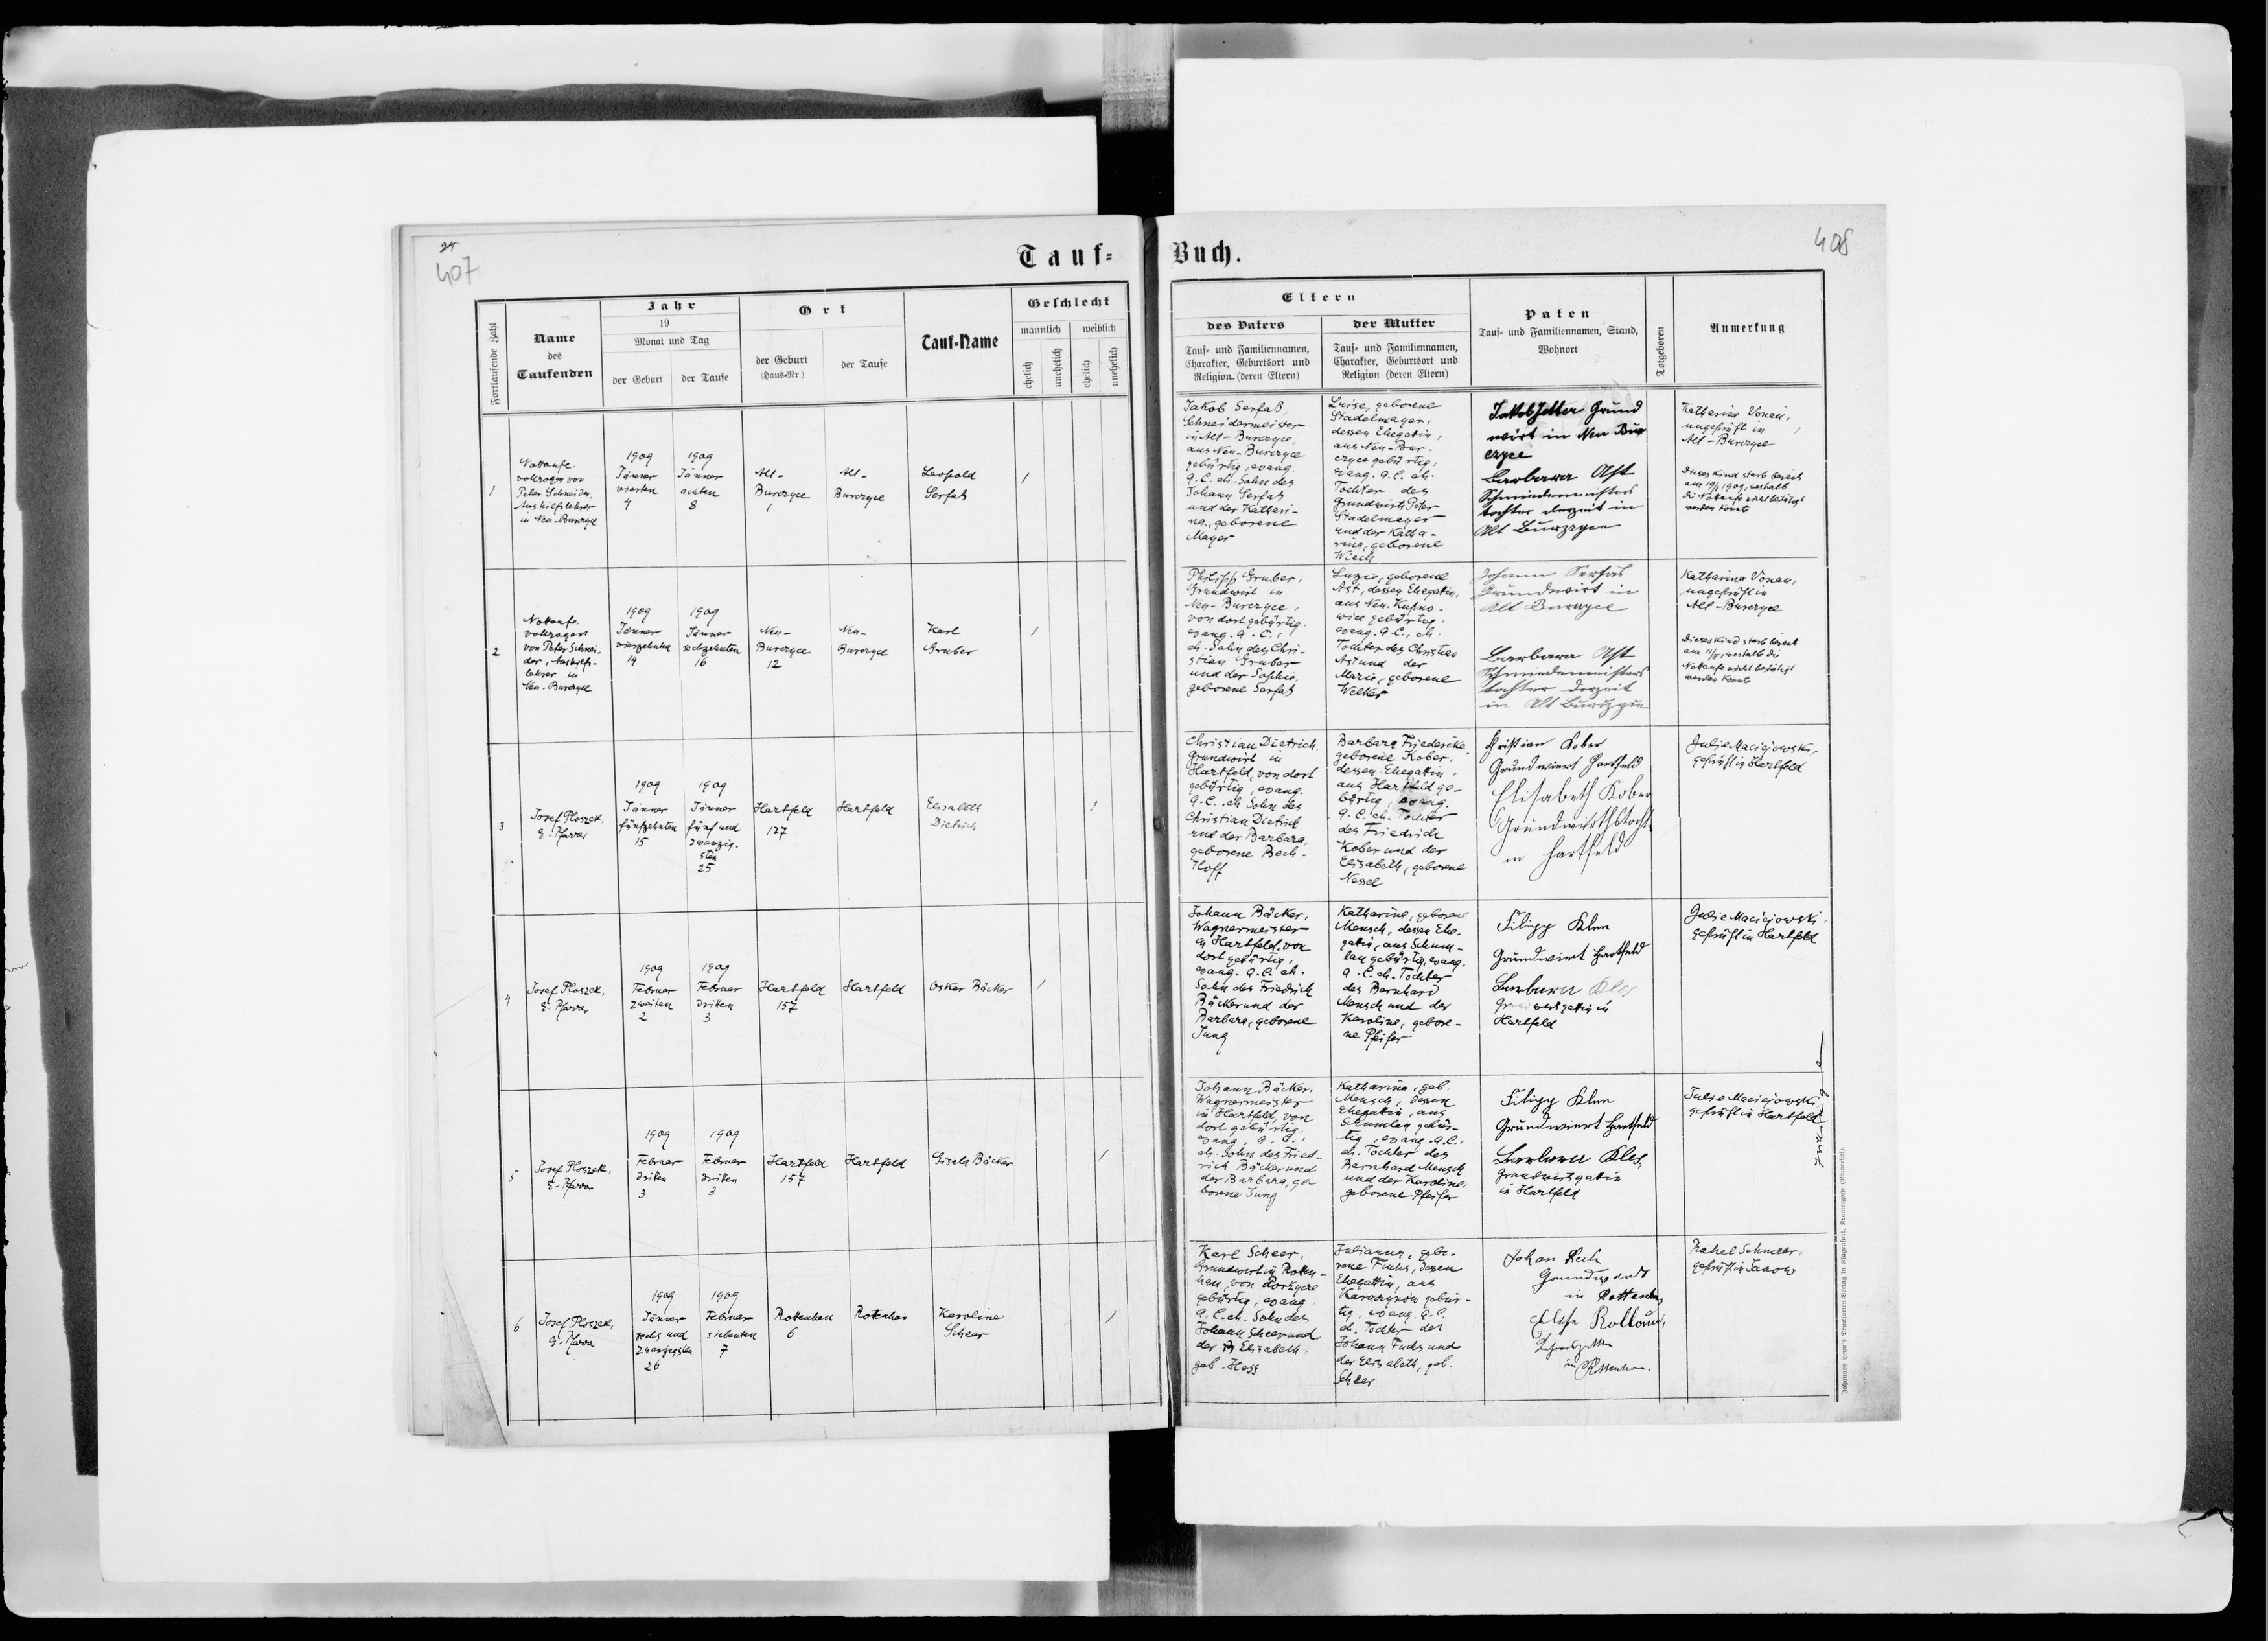 24
407
Tauf=
Buch.
408
Fortlaufende Zahl
Name
des
Taufenden
Jahr
19
Monat und Tag
der Geburt
der Taufe
Ort
der Geburt
(Haus-Nr.)
der Taufe
Tauf-Name
Geschlecht
männlich
weiblich
ehelich
unehelich
ehelich
unehelich
Eltern
des Vaters
Tauf- und Familiennamen,
Charakter, Geburtsort und
Religion (deren Eltern)
der Mutter
Tauf- und Familiennamen,
Charakter, Geburtsort und
Religion (deren Eltern)
Paten
Tauf- und Familiennamen, Stand,
Wohnort
Totgeboren
Anmerkung
1
Nottaufe
vollzogen von
Peter Schneider,
Aushilfslehrer
in Neu-Burczyce
1909
Jänner
vierten
4
1909
Jänner
achten
8
Alt-
Burczyce
1
Alt-
Burczyce
Leopold
Serfaß
/
Jakob Serfaß,
Schneidermeister
in Alt-Burczyce,
aus Neu-Burczyce
gebürtig, evang.
A.C. eh. Sohn des
Johann Serfaß
und der Kathari-
na, geborene
Mayer
Luise, geborene
Stadelmayer,
dessen Ehegattin,
aus Neu-Bur-
czyce gebürtig,
evang. A.C. eh.
Tochter des
Grundwirts Peter
Stadelmayer
und der Katha-
rina, geborene
Wiech
Jakob Grund
wirt in Neu Bur
czyce
Barbara Ast
Schmiedemeisters
tochter derzeit in
Alt Burczyce
Katharina Vonau,
ungeprüft in
Alt-Burczyce
Dieses Kind starb bereits
am 19/1 1909, weshalb
die Nottaufe nicht bestätigt
werden konnte
2
Nottaufe
vollzogen
von Peter Schnei-
der, Aushilfs-
lehrer in
Neu-Burczyce
1909
Jänner
vierzehnten
14
1909
Jänner
sechzehnten
16
Neu-
Burczyce
12
Neu-
Burczyce
Karl
Gruber
/
Philipp Gruber,
Grundwirt in
Neu-Burczyce,
von dort gebürtig,
evang. A.C.,
eh. Sohn des Chri-
stian Gruber
und der Sophie,
geborene Serfaß
Luzie, geborene
Ast, dessen Ehegattin,
aus Neu-Kupno-
wice gebürtig,
evang. A.C., eh.
Tochter des Christian
Ast und der
Marie, geborene
Welker
Johann Serfas
Grundwirt in
Alt Burczyce
Barbara Ast
Schmiedemeisters
tochter derzeit
in Alt Burczyce
Katharina Vonau,
ungeprüft in
Alt-Burczyce
Dieses Kind starb bereits
weshalb die
Nottaufe nicht bestätigt
werden konnte
3
Josef Ploszek,
E. Pfarrer
1909
Jänner
fünfzehnten
15
1909
Jänner
fünf und
zwanzig-
sten
25
Hartfeld
127
Hartfeld
Elisabeth
Dietrich
/
Christian Dietrich,
Grundwirt in
Hartfeld, von dort
gebürtig, evang.
A.C. eh Sohn des
Christian Dietrich
und der Barbara,
geborene Bech-
tloff
Barbara Friederike
geborene Kober,
dessen Ehegattin,
aus Hartfeld ge-
bürtig, evang.
A.C. eh. Tochter
des Friedrich
Kober und der
Elisabeth, geborene
Nessel
Christian Kober
Grundwiert Hartfeld
Elisabeth Kober
Grundwirthstocht.
in Hartfeld
Julie Maciejowski,
geprüft in Hartfeld
4
Josef Ploszek,
E. Pfarrer
1909
Februar
zweiten
2
1909
Februar
dritten
3
Hartfeld
157
Hartfeld
Oskar Bäcker
/
Johann Bäcker,
Wagnermeister
in Hartfeld, von
dort gebürtig,
evang. A.C. eh.
Sohn des Friedrich
Bäcker und der
Barbara, geborene
Jung
Katharina, geborene
Mensch, dessen Ehe-
gattin, aus Schum-
lau gebürtig, evang.
A.C. eh. Tochter
des Bernhard
Mensch und der
Karoline, gebore-
ne Pfeifer
Filipp Klen
Grundwiert Hartfeld
Barbara Kles
Grundwirtsgattin in
Hartfeld
Julie Maciejowski,
geprüft in Hartfeld
5
Josef Ploszek,
E. Pfarrer
1909
Februar
dritten
3
1909
Februar
dritten
3
Hartfeld
157
Hartfeld
Gisela Bäcker
/
Johann Bäcker,
Wagnermeister
in Hartfeld, von
dort gebürtig,
evang. A.C.,
eh. Sohn des Fried-
rich Bäcker und
der Barbara, ge-
borene Jung
Katharina, geb.
Mensch, dessen
Ehegattin, aus
Schumlau gebür-
tig, evang. A.C.,
eh. Tochter des
Bernhard Mensch
und der Karoline,
geborene Pfeifer
Filipp Klen
Grundwiert Hartfeld
Barbara Kles,
Grundwirtsgattin
in Hartfeld
Julie Maciejowski,
geprüft in Hartfeld
6
Josef Ploszek,
E. Pfarrer
1909
Jänner
sechs und
zwanzigsten
26
1909
Februar
siebenten
7
Rottenhan
6
Rottenhan
Karoline
Scheer
/
Karl Scheer,
Grundwirt in Rotten-
han, von
gebürtig, evang.
A.C. eh. Sohn des
Johann Scheer und
der Elisabeth,
geb. Hess
Julianna, gebo-
rene Fuchs, dessen
Ehegattin, aus
Karaczynow gebür-
tig, evang. A.C.
eh. Tochter des
Johann Fuchs und
der Elisabeth, geb.
Scheer
Johan
Grundwirt
in Rottenhan
Elise
in Rottenhan.
Rahel Schmeer,
geprüft in Janow
Johannes Heyn's Drucksorten-Verlag in Klagenfurt, Kramergasse